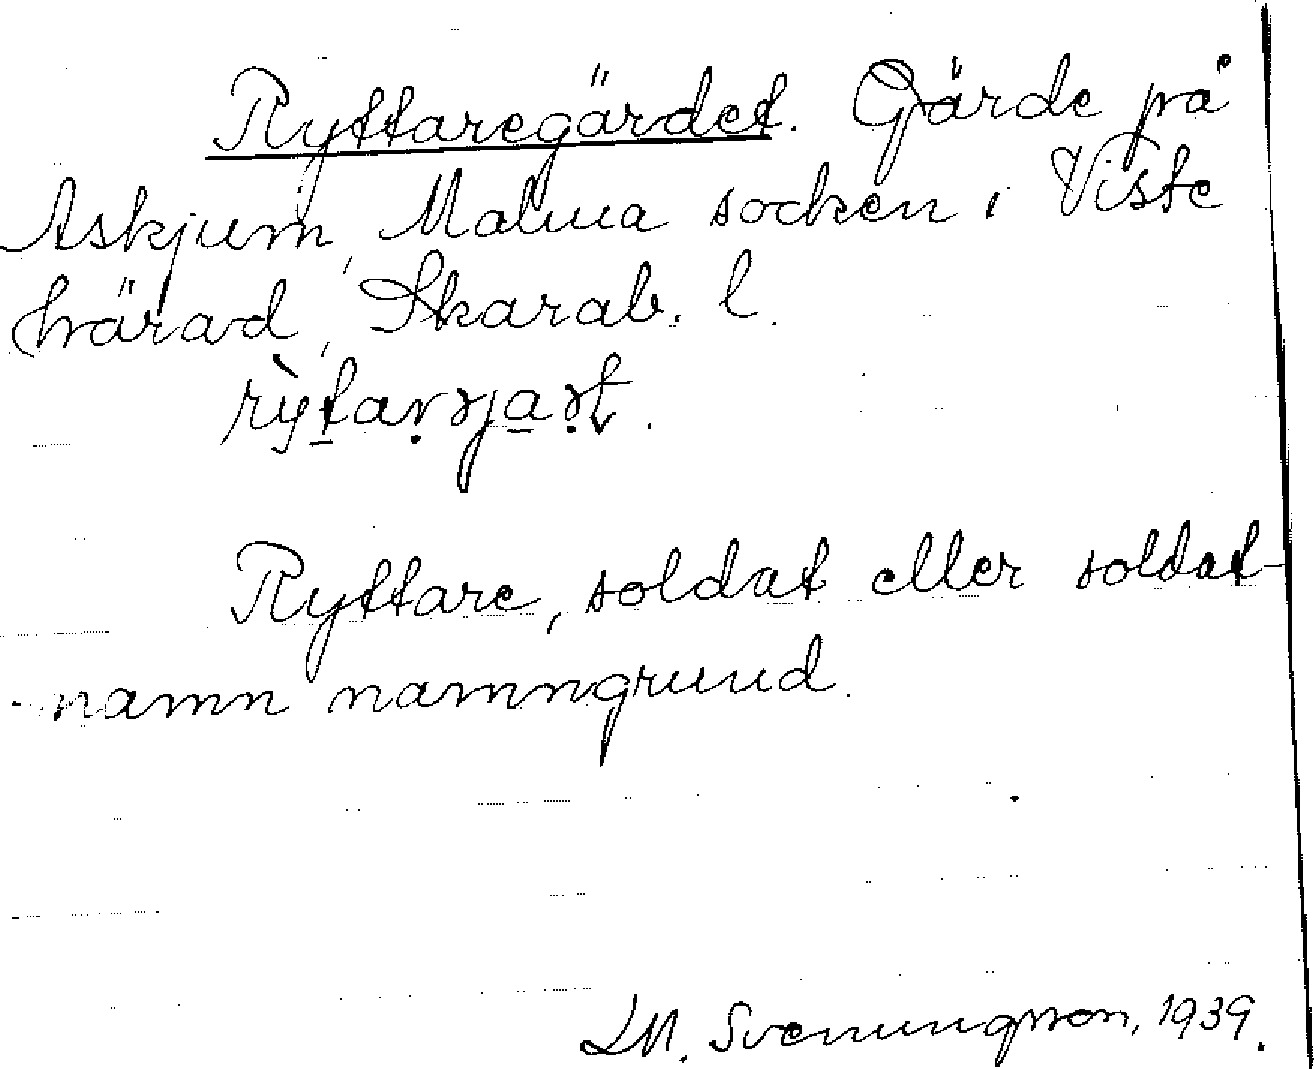 Ryttaregärdet. Gärde på
Askjum, Malma socken i Viste
härad, Skarab. l.
Ryttare, soldat eller soldat-
namn namngrund.
LM. Svenungsson, 1939.